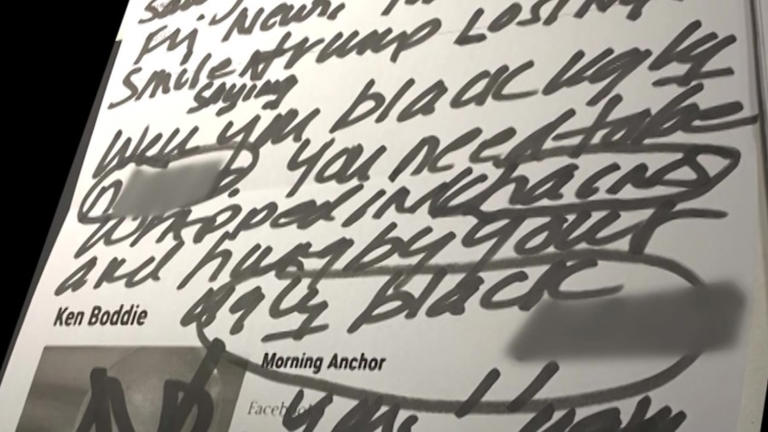 Fij News
Smile trump Losing
saying
Well you black ugly
you need to be
wrapped in chains
and hung by your
ugly black
Ken Boddie
Morning Anchor
Facebook
you ugly